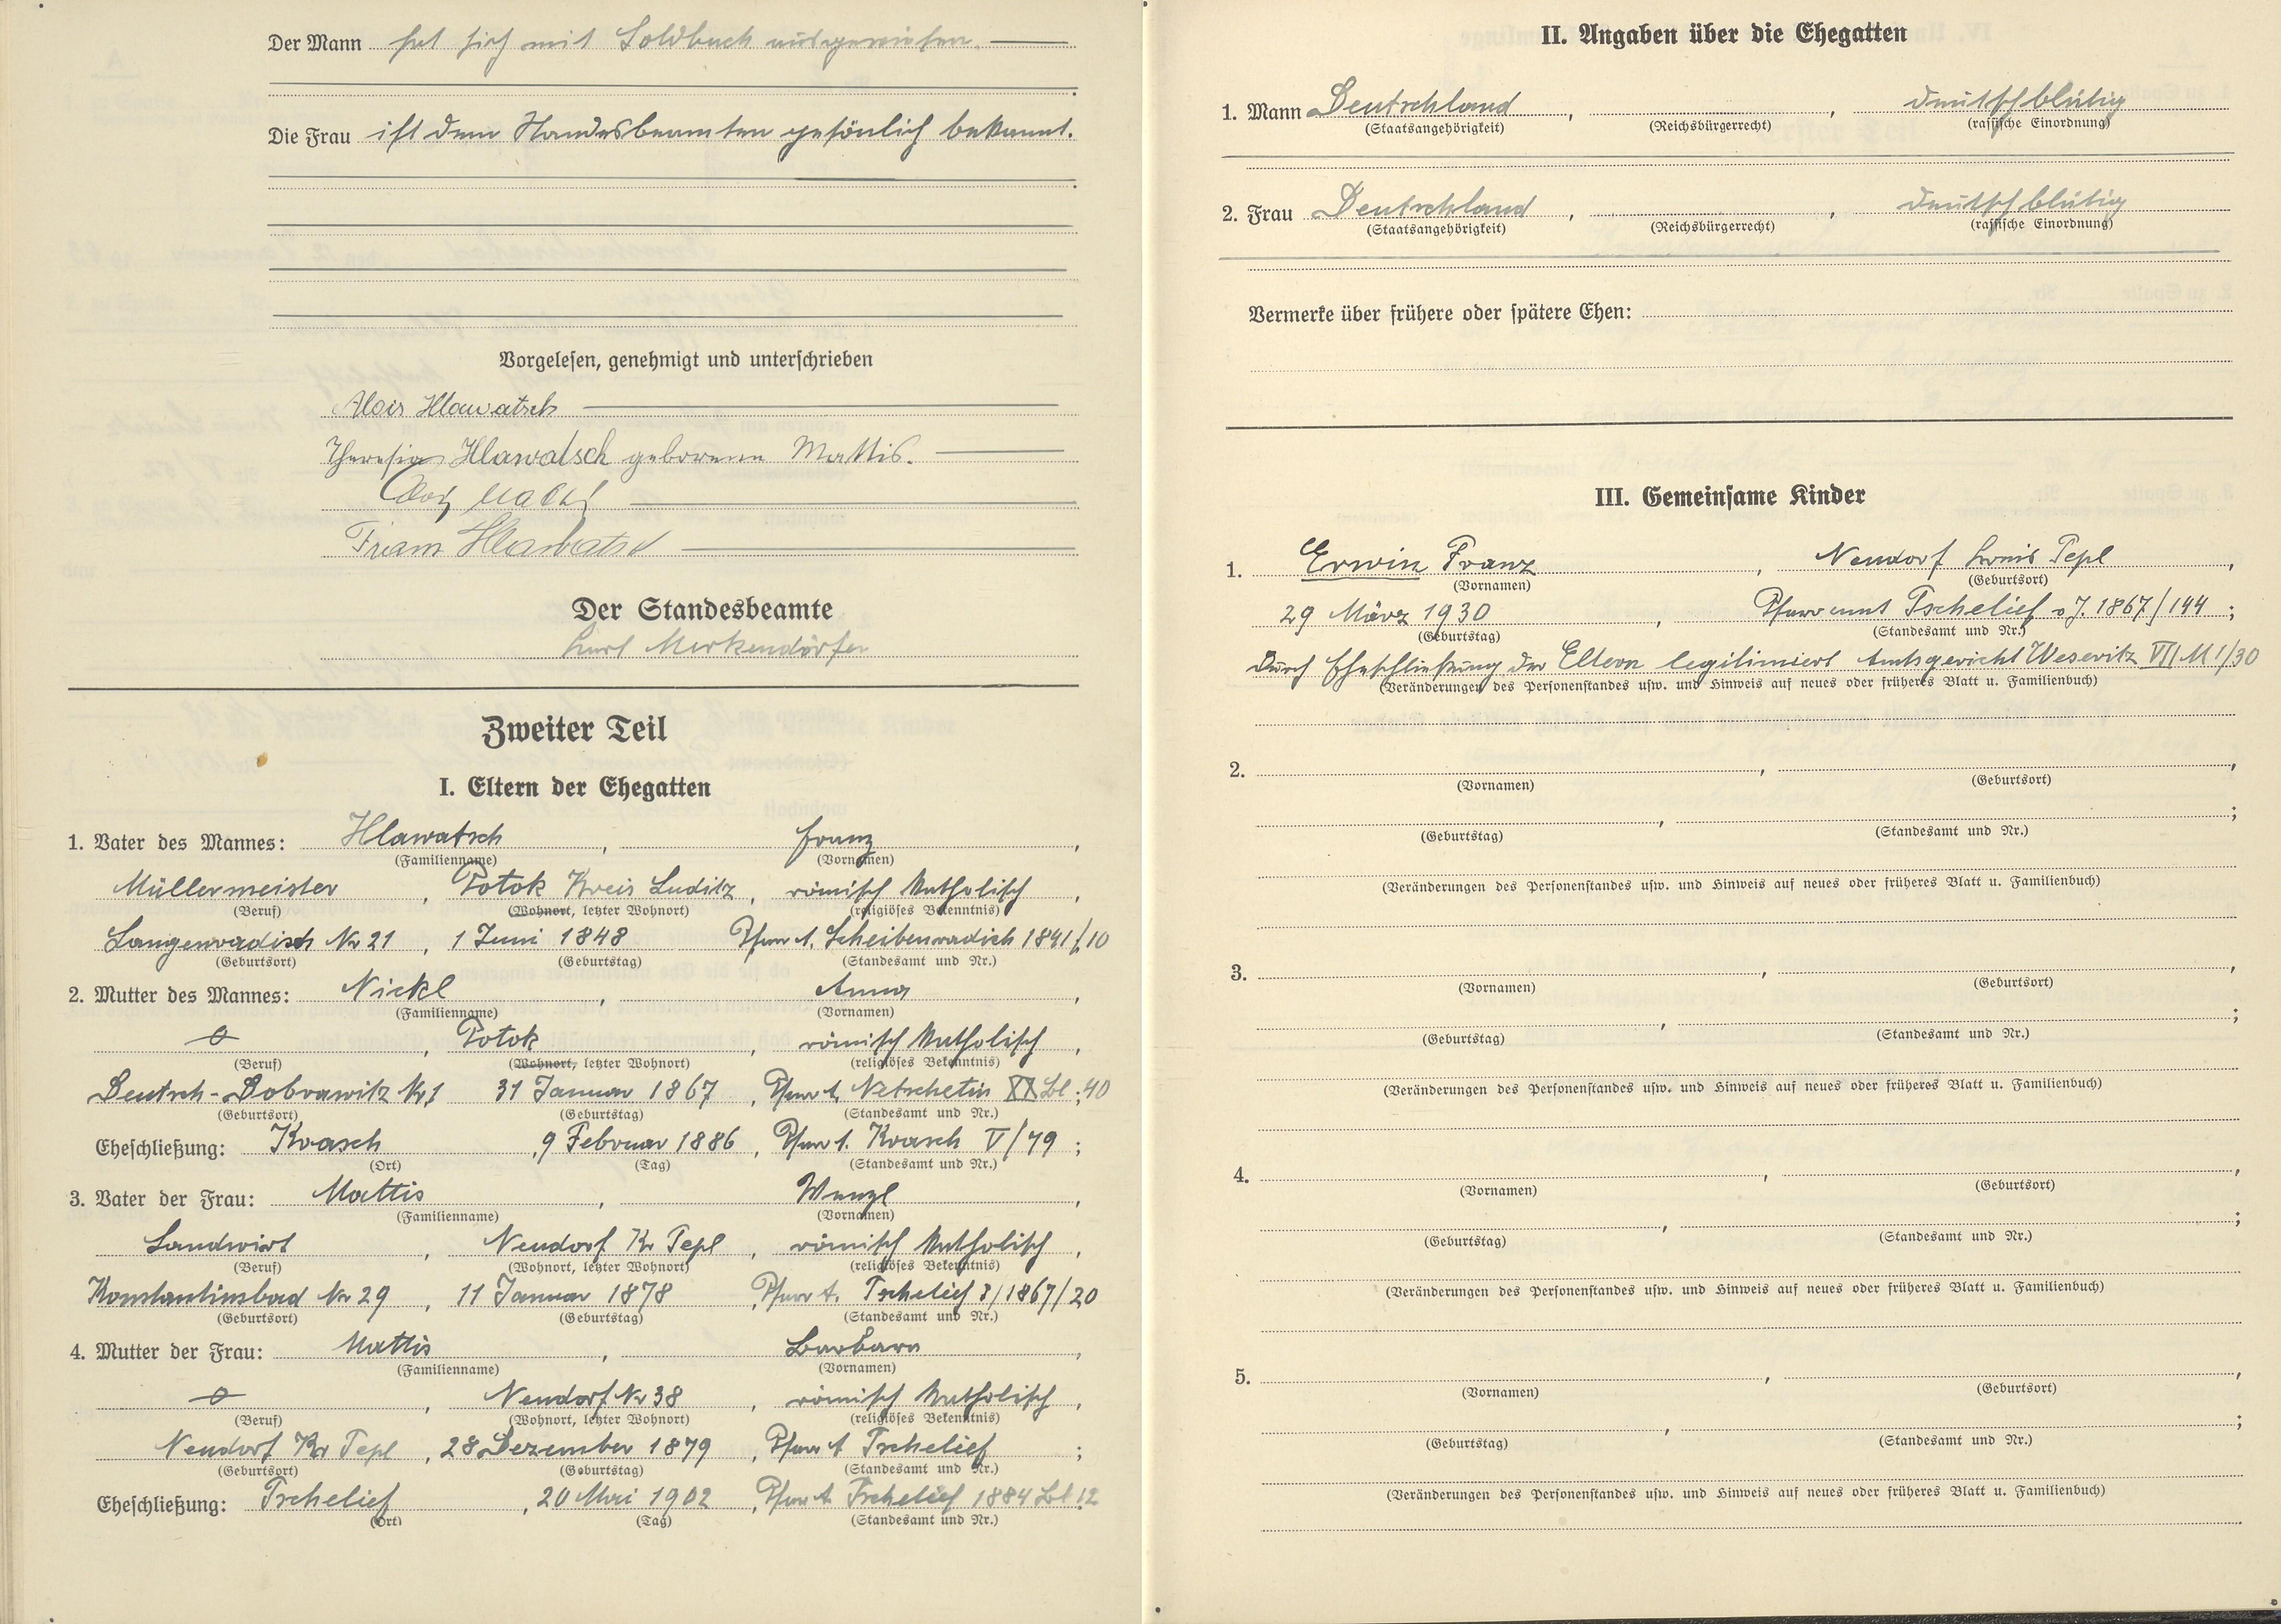 Der Mann hat sich mit Soldbuch ausgewiesen.
Die Frau ist dem Standesbeamten persönlich bekannt.
Vorgelesen, genehmigt und unterschrieben
Alois Hlawatsch
Theresia Hlawatsch geborene Mattis.
Franz Hlawatsch
Der Standesbeamte
Karl Merkendörfer
Zweiter Teil
I. Eltern der Ehegatten
1. Vater des Mannes: Hlawatsch, Franz,
(Familienname) (Vornamen)
Müllermeister, Potok Kreis Luditz, römisch katholisch,
(Beruf) (Wohnort, letzter Wohnort) (religiöses Bekenntnis)
Langenradisch Nr 21, 1 Juni 1848 Pfarr A. Scheibenradich 1841/10
(Geburtsort) (Geburtstag) (Standesamt und Nr.)
2. Mutter des Mannes: Nickl, Anna,
(Familienname) (Vornamen)
o, Potok, römisch katholisch,
(Beruf) (Wohnort, letzter Wohnort) (religiöses Bekenntnis)
Deutsch-Dobrawitz Nr 1 31 Januar 1867, Pfarr A. Netschetin XX Bl; 40
(Geburtsort) (Geburtstag) (Standesamt und Nr.)
Eheschließung: Krasch, 9 Februar 1886, Pfarr A. Krasch V/79;
(Ort) (Tag) (Standesamt und Nr.)
3. Vater der Frau: Mattis, Wenzl,
(Familienname) (Vornamen)
Landwirt, Neudorf Kr Tepl, römisch katholisch,
(Beruf) (Wohnort, letzter Wohnort) (religiöses Bekenntnis)
Konstantinsbad Nr 29, 11 Januar 1878, Pfarr A. Tschelief J/1867/20
(Geburtsort) (Geburtstag) (Standesamt und Nr.)
4. Mutter der Frau: Mattis, Barbara,
(Familienname) (Vornamen)
o, Neudorf Nr 38, römisch katholisch,
(Beruf) (Wohnort, letzter Wohnort) (religiöses Bekenntnis)
Neudorf Kr Tepl, 28 Dezember 1879, Pfarr A Tschelief;
(Geburtsort) (Geburtstag) (Standesamt und Nr.)
Eheschließung: Tschelief, 20 Mai 1902, Pfarr A Tschelief 1884 Bl 12
(Ort) (Tag) (Standesamt und Nr.)
II. Angaben über die Ehegatten
1. Mann Deutschland, , deutschblütig
(Staatsangehörigkeit) (Reichsbürgerrecht) (rassische Einordnung)
2. Frau Deutschland, , deutschblütig
(Staatsangehörigkeit) (Reichsbürgerrecht) (rassische Einordnung)
Vermerke über frühere oder spätere Ehen:
III. Gemeinsame Kinder
1. Erwin Franz, Neudorf Kreis Tepl,
(Vornamen) (Geburtsort)
29 März 1930, Pfarramt Tschelief v J. 1867/144;
(Geburtstag) (Standesamt und Nr.)
durch Eheschließung der Eltern legitimiert Amtsgericht Weseritz VII M 1/30
(Veränderungen des Personenstandes usw. und Hinweis auf neues oder früheres Blatt u. Familienbuch)
2. , ,
(Vornamen) (Geburtsort)
, ;
(Geburtstag) (Standesamt und Nr.)
(Veränderungen des Personenstandes usw. und Hinweis auf neues oder früheres Blatt u. Familienbuch)
3. , ,
(Vornamen) (Geburtsort)
, ;
(Geburtstag) (Standesamt und Nr.)
(Veränderungen des Personenstandes usw. und Hinweis auf neues oder früheres Blatt u. Familienbuch)
4. , ,
(Vornamen) (Geburtsort)
, ;
(Geburtstag) (Standesamt und Nr.)
(Veränderungen des Personenstandes usw. und Hinweis auf neues oder früheres Blatt u. Familienbuch)
5. , ,
(Vornamen) (Geburtsort)
, ;
(Geburtstag) (Standesamt und Nr.)
(Veränderungen des Personenstandes usw. und Hinweis auf neues oder früheres Blatt u. Familienbuch)